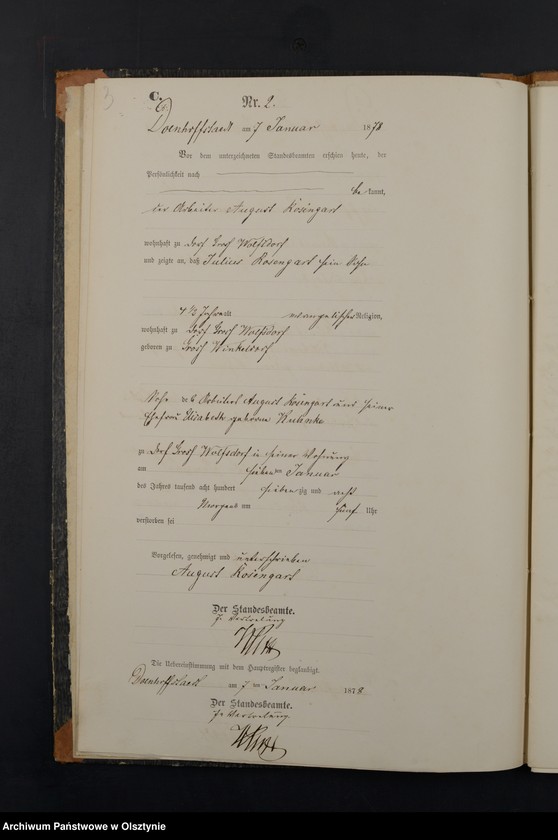 3
C.
Nr. 2.
Doenhoffstaedt am 7 Januar 1878
Vor dem unterzeichneten Standesbeamten erschien heute, der
Persönlichkeit nach
be kannt,
der Arbeiter August Rosengart
wohnhaft zu Dorf Gross Wolfsdorf
und zeigte an, daß Julius Rosengart sein Sohn
4 1/2 Jahre alt evangelischer Religion,
wohnhaft zu Dorf Gross Wolfsdorf
geboren zu Gross Winkeldorf
Sohn des Arbeiters August Rosengart und seiner
Ehefrau Elisabeth geborene
zu Dorf Gross Wolfsdorf in seiner Wohnung
am sieben ten Januar
des Jahres tausend acht hundert sieben zig und acht
Morgens um fünf Uhr
verstorben sei
Vorgelesen, genehmigt und unterschrieben
August Rosengart
Der Standesbeamte.
In Vertretung
Die Uebereinstimmung mit dem Hauptregister beglaubigt.
Doenhoffstaedt am 7 ten Januar 1878.
Der Standesbeamte.
In Vertretung
Archiwum Państwowe w Olsztynie